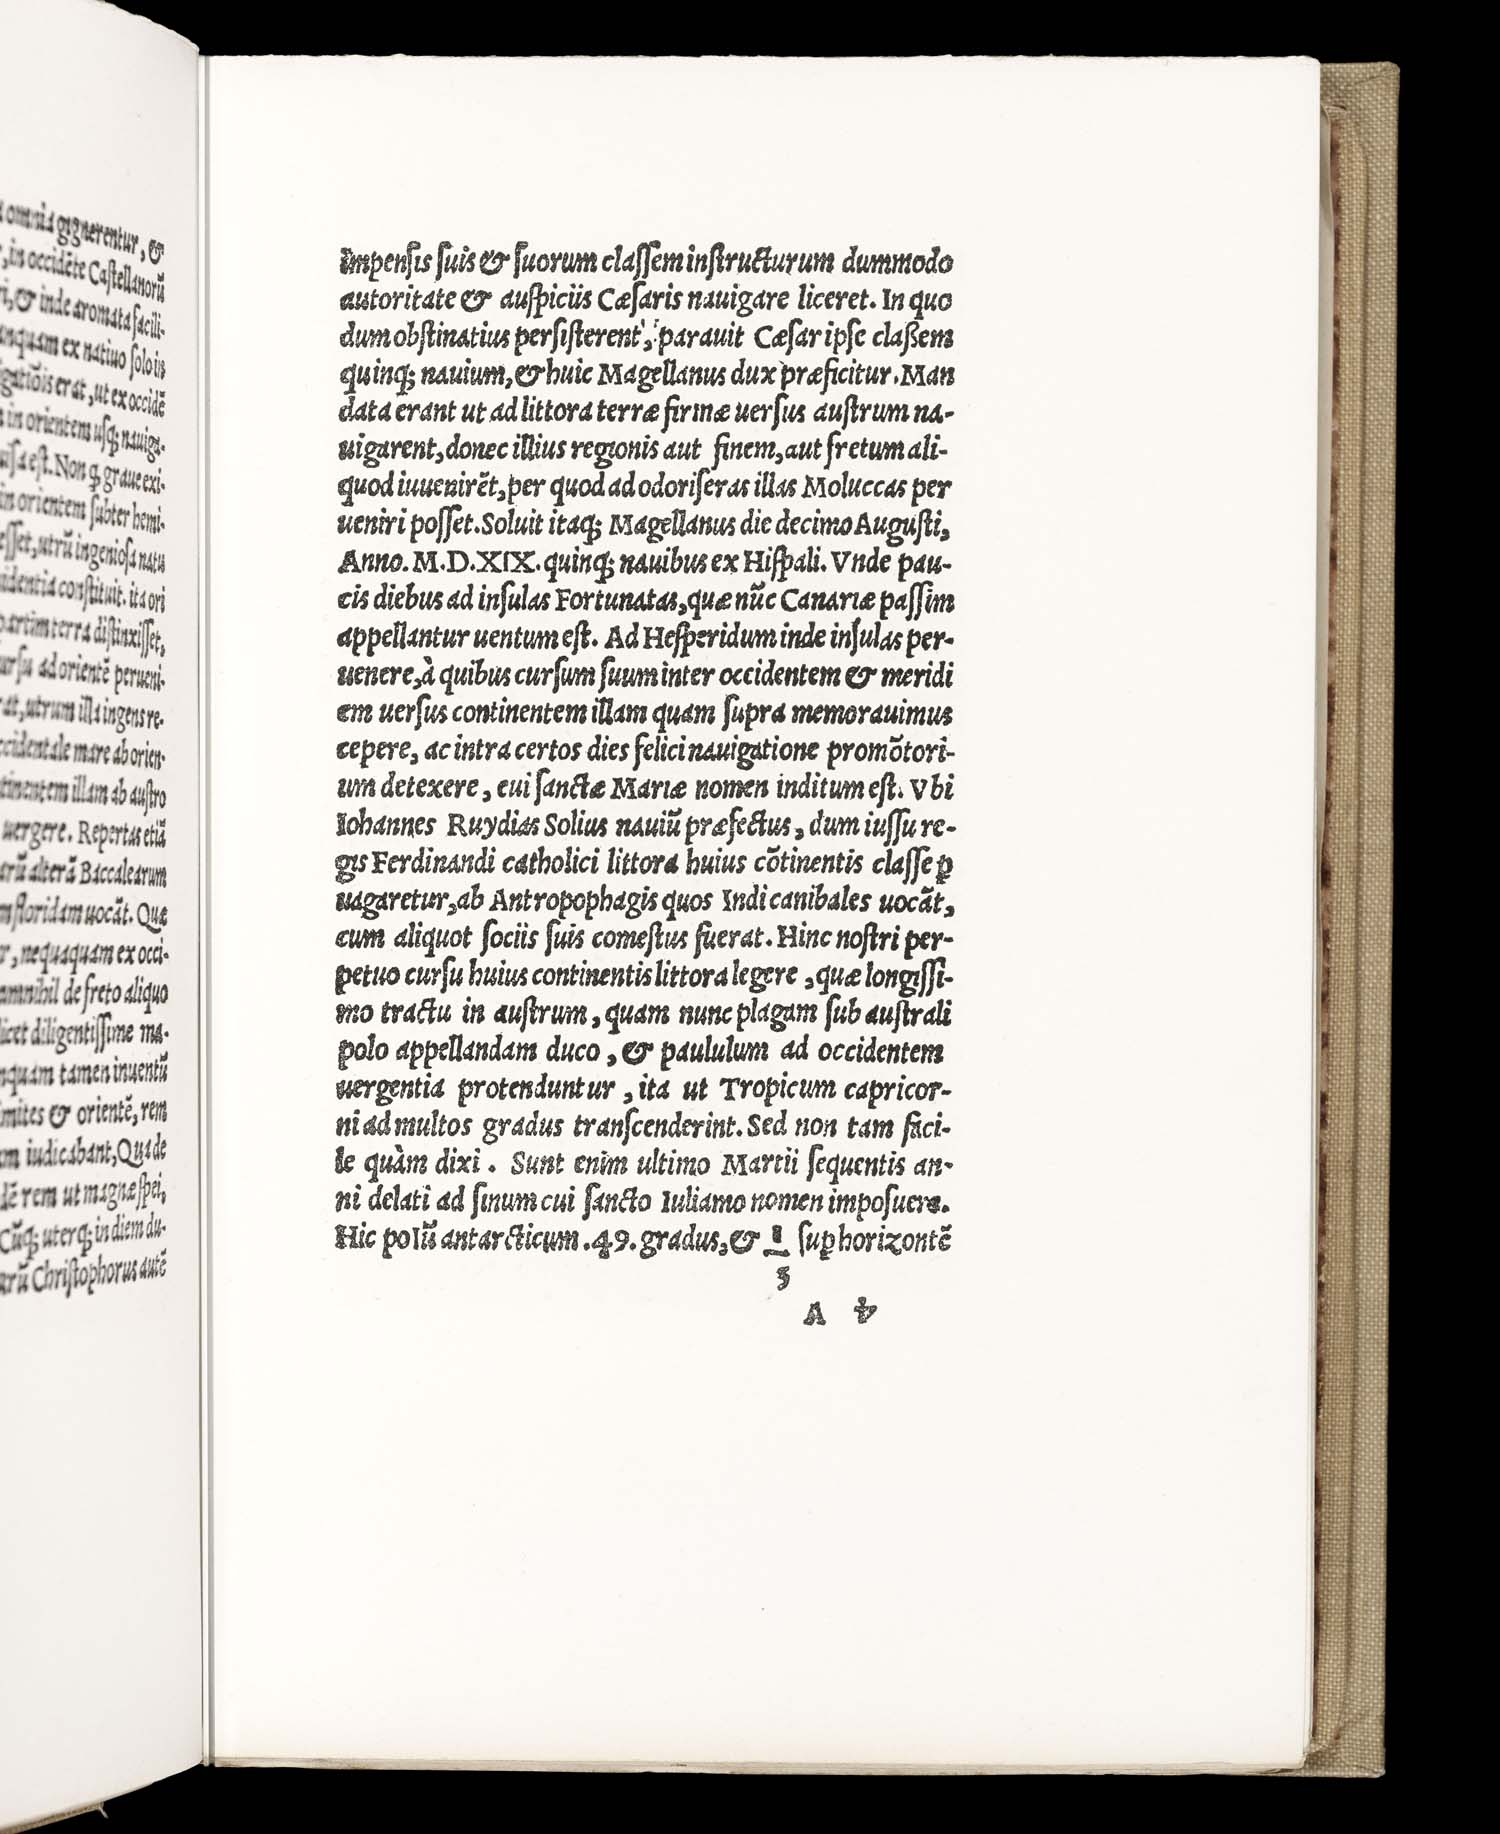 omnia gignerentur, &
, in occidẽte Castellanorũ
ri, & inde aromata facili-
anquam ex natiuo solo iis
igatiõis erat, ut ex occidẽ
in orientem usq; nauiga-
uisa est. Non ꝗ graue exi-
in orientem subter hemi-
esset, utrũ ingeniosa natu
uidentia constituit. ita ori
partim terra distinxisset,
ursu ad orientẽ perueni-
rat, utrum illa ingens re-
ccidentale mare ab orien-
tinentem illam ab austro
uergere. Repertas etiã
arũ alterã Baccalearum
m floridam uocãt. Quæ
r, nequaquam ex occi-
amnihil de freto aliquo
licet diligentissime ma-
nquam tamen inuentũ
imites & orientẽ, rem
m iudicabant, Qua de
dẽ rem ut magnæ spei,
Cũq; uterq; in diem du-
arũ Christophorus autẽ
Impensis suis & suorum classem instructurum dummodo
autoritate & auspiciis Cæsaris nauigare liceret. In quo
dum obstinatius persisterent, parauit Cæsar ipse claßem
quinq; nauium, & huic Magellanus dux præficitur. Man
data erant ut ad littora terræ firmæ uersus austrum na-
uigarent, donec illius regionis aut finem, aut fretum ali-
quod iuuenirẽt, per quod ad odoriferas illas Moluccas per
ueniri posset. Soluit itaq; Magellanus die decimo Augusti,
Anno. M.D.XIX. quinq; nauibus ex Hispali. Vnde pau-
cis diebus ad insulas Fortunatas, quæ nũc Canariæ passim
appellantur uentum est. Ad Hesperidum inde insulas per-
uenere, à quibus cursum suum inter occidentem & meridi
em uersus continentem illam quam supra memorauimus
cepere, ac intra certos dies felici nauigatione promõtori-
um detexere, cui sanctæ Mariæ nomen inditum est. Vbi
Iohannes Ruydias Solius nauiũ præfectus, dum iussu re-
gis Ferdinandi catholici littora huius cõtinentis classe ꝑ
uagaretur, ab Antropophagis quos Indi canibales uocãt,
cum aliquot sociis suis comestus fuerat. Hinc nostri per-
petuo cursu huius continentis littora legere, quæ longissi-
mo tractu in austrum, quam nunc plagam sub australi
polo appellandam duco, & paululum ad occidentem
uergentia protenduntur, ita ut Tropicum capricor-
ni ad multos gradus transcenderint. Sed non tam faci-
le quàm dixi. Sunt enim ultimo Martii sequentis an-
ni delati ad sinum cui sancto Iuliamo nomen imposuere.
Hic polũ antarcticum .49. gradus, & 1 suꝑ horizontẽ
3
A v